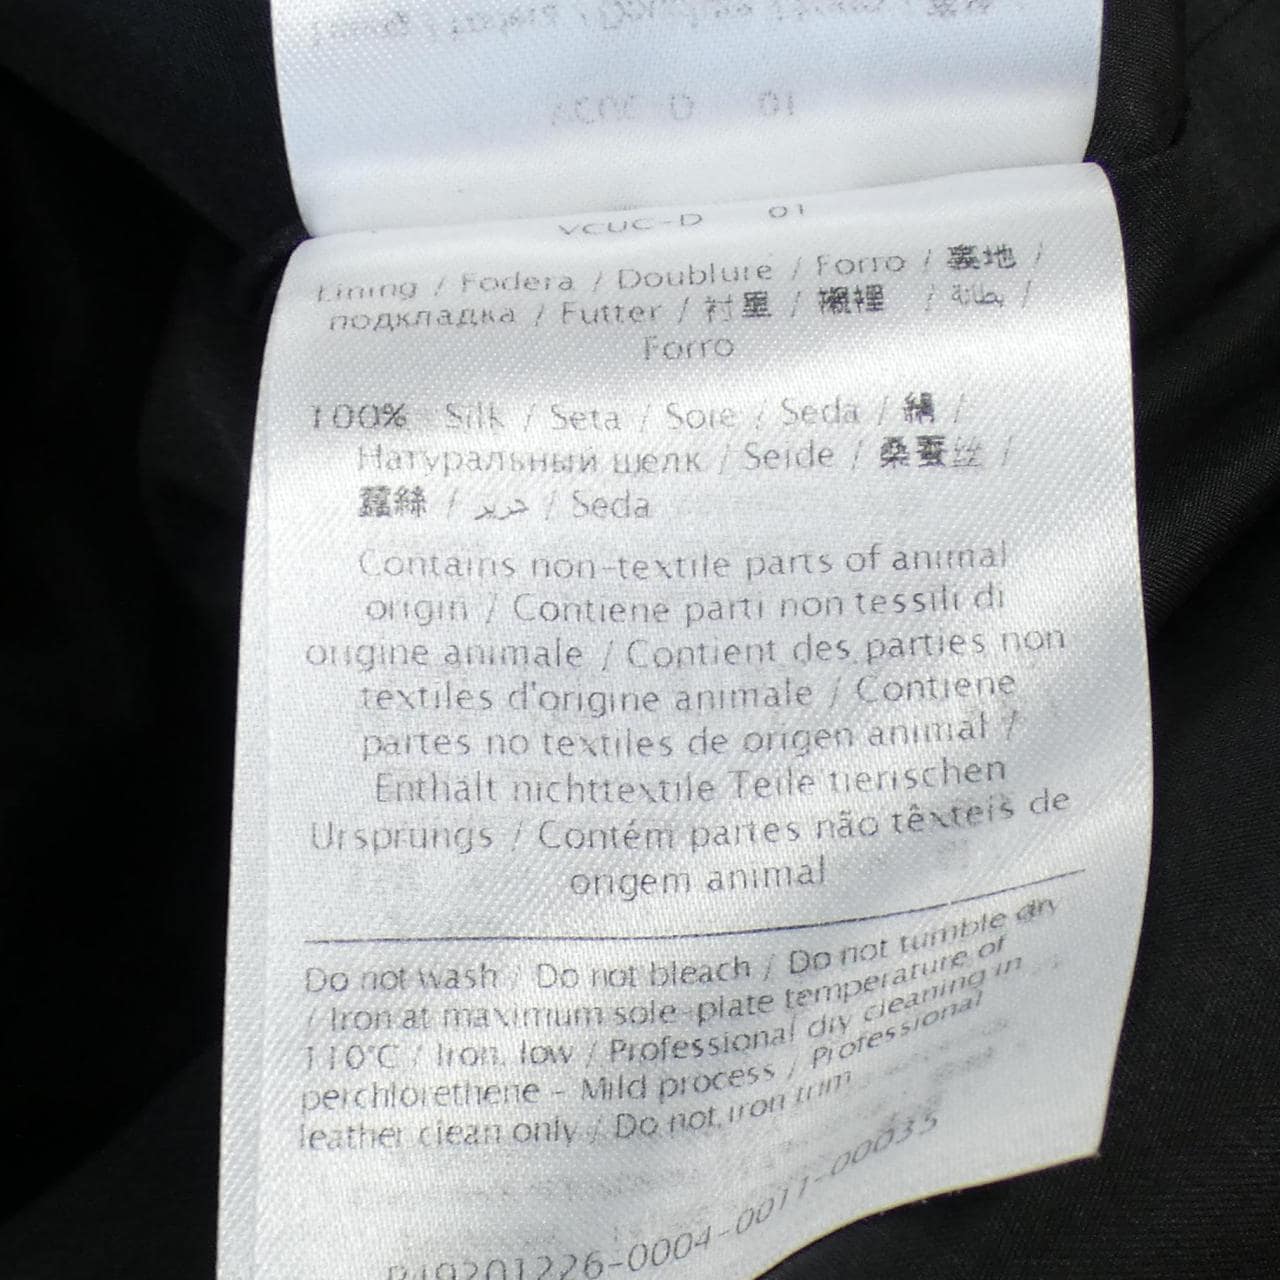 VCUC-D 01
Lining / Fodera / Doublure / Forro / 裏地 /
подкладка / Futter / 衬里 / 襯裡 / بطانة /
Forro
100% Silk / Seta / Soie / Seda / 絹 /
Натуральный шелк / Seide / 桑蚕丝 /
蠶絲 / حرير / Seda
Contains non-textile parts of animal
origin / Contiene parti non tessili di
origine animale / Contient des parties non
textiles d'origine animale / Contiene
partes no textiles de origen animal /
Enthält nichttextile Teile tierischen
Ursprungs / Contém partes não têxteis de
origem animal
Do not wash / Do not bleach / Do not tumble dry
/ Iron at maximum sole-plate temperature of
110°C / Iron, low / Professional dry cleaning in
perchlorethene - Mild process / Professional
leather clean only / Do not iron trim
R49201226-0004-0011-00035